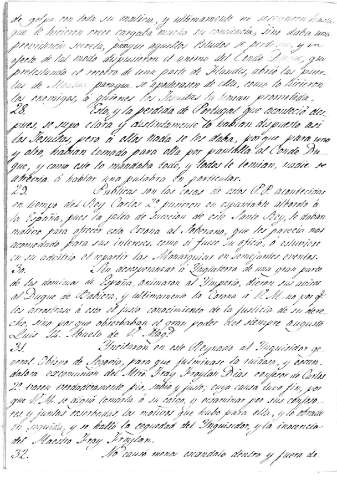 de golpe con toda su malicia, y ultimamente
que le hicieron
providencia secreta, porque aquellos Estados se perdieron y en
efecto de tal modo dispusieron el animo del Conde
pretextando el recobro de una parte de Flandes, abrió las puer-
tas de para que se apoderasen de ella, como lo hicieron
los enemigos, a quienes los Jesuitas la tenian prometida.
28. Esto, y la perdida de Portugal que aconteció des-
pues, se supo clara y distintamente lo habian dispuesto asi
los Jesuitas, pero a ellos nada se les daba, porque para uno
y otro, habian tomado para ello por pantalla al Conde Du-
que, y como este lo mandaba todo, y todos le temian, nadie se
atrevia a hablar una palabra en particular.
29. Publicas son las cosas de estos P.P. acontecidas
en tiempo del Rey Carlos 2º pusieron en equivalente alboroto à
la España, pues la falta de sucesion de este Santo Rey, le daban
motivo para ofrecer esta Corona al Soberano, que les parecia mas
acomodado para sus intereses, como si fuese su oficio, o estuviese
en su advitrio el repartir las Monarquias en semejantes eventos.
30. Asi acompañaron a Ynglaterra de una gran parte
de los dominios de España, animaron al Ymperio, dieron sus
al Duque de Babiera, y ultimamente la Corona a V.M. no porque
les arrastrase a esto el justo conocimiento de la justicia de su dere-
cho, sino por que absorbaban el gran poder del siempre augusto
Luis 14. Abuelo de V. Magd.
31. Yncitaron en este Reynado al Ynquisidor ge-
neral Obispo de Segovia, para que fulminase la ruidosa, y escan-
dalosa excomunion del Mtro Fray Froylan Diaz confesor de Carlos
2º varon verdaderamente pio, sabio y justo, cuya causa tuvo fin, por
que V.M. se dignó tomarla a su cargo, y examinar por sus confeso-
res y juntas reservadas, los motivos que hubo para ella, y lo obrado
en seguida, y se halló la ceguedad del Ynquisidor, y la inocencia
del Maestro Fray Froylan.
32. No causó menos escandalo dentro y fuera de